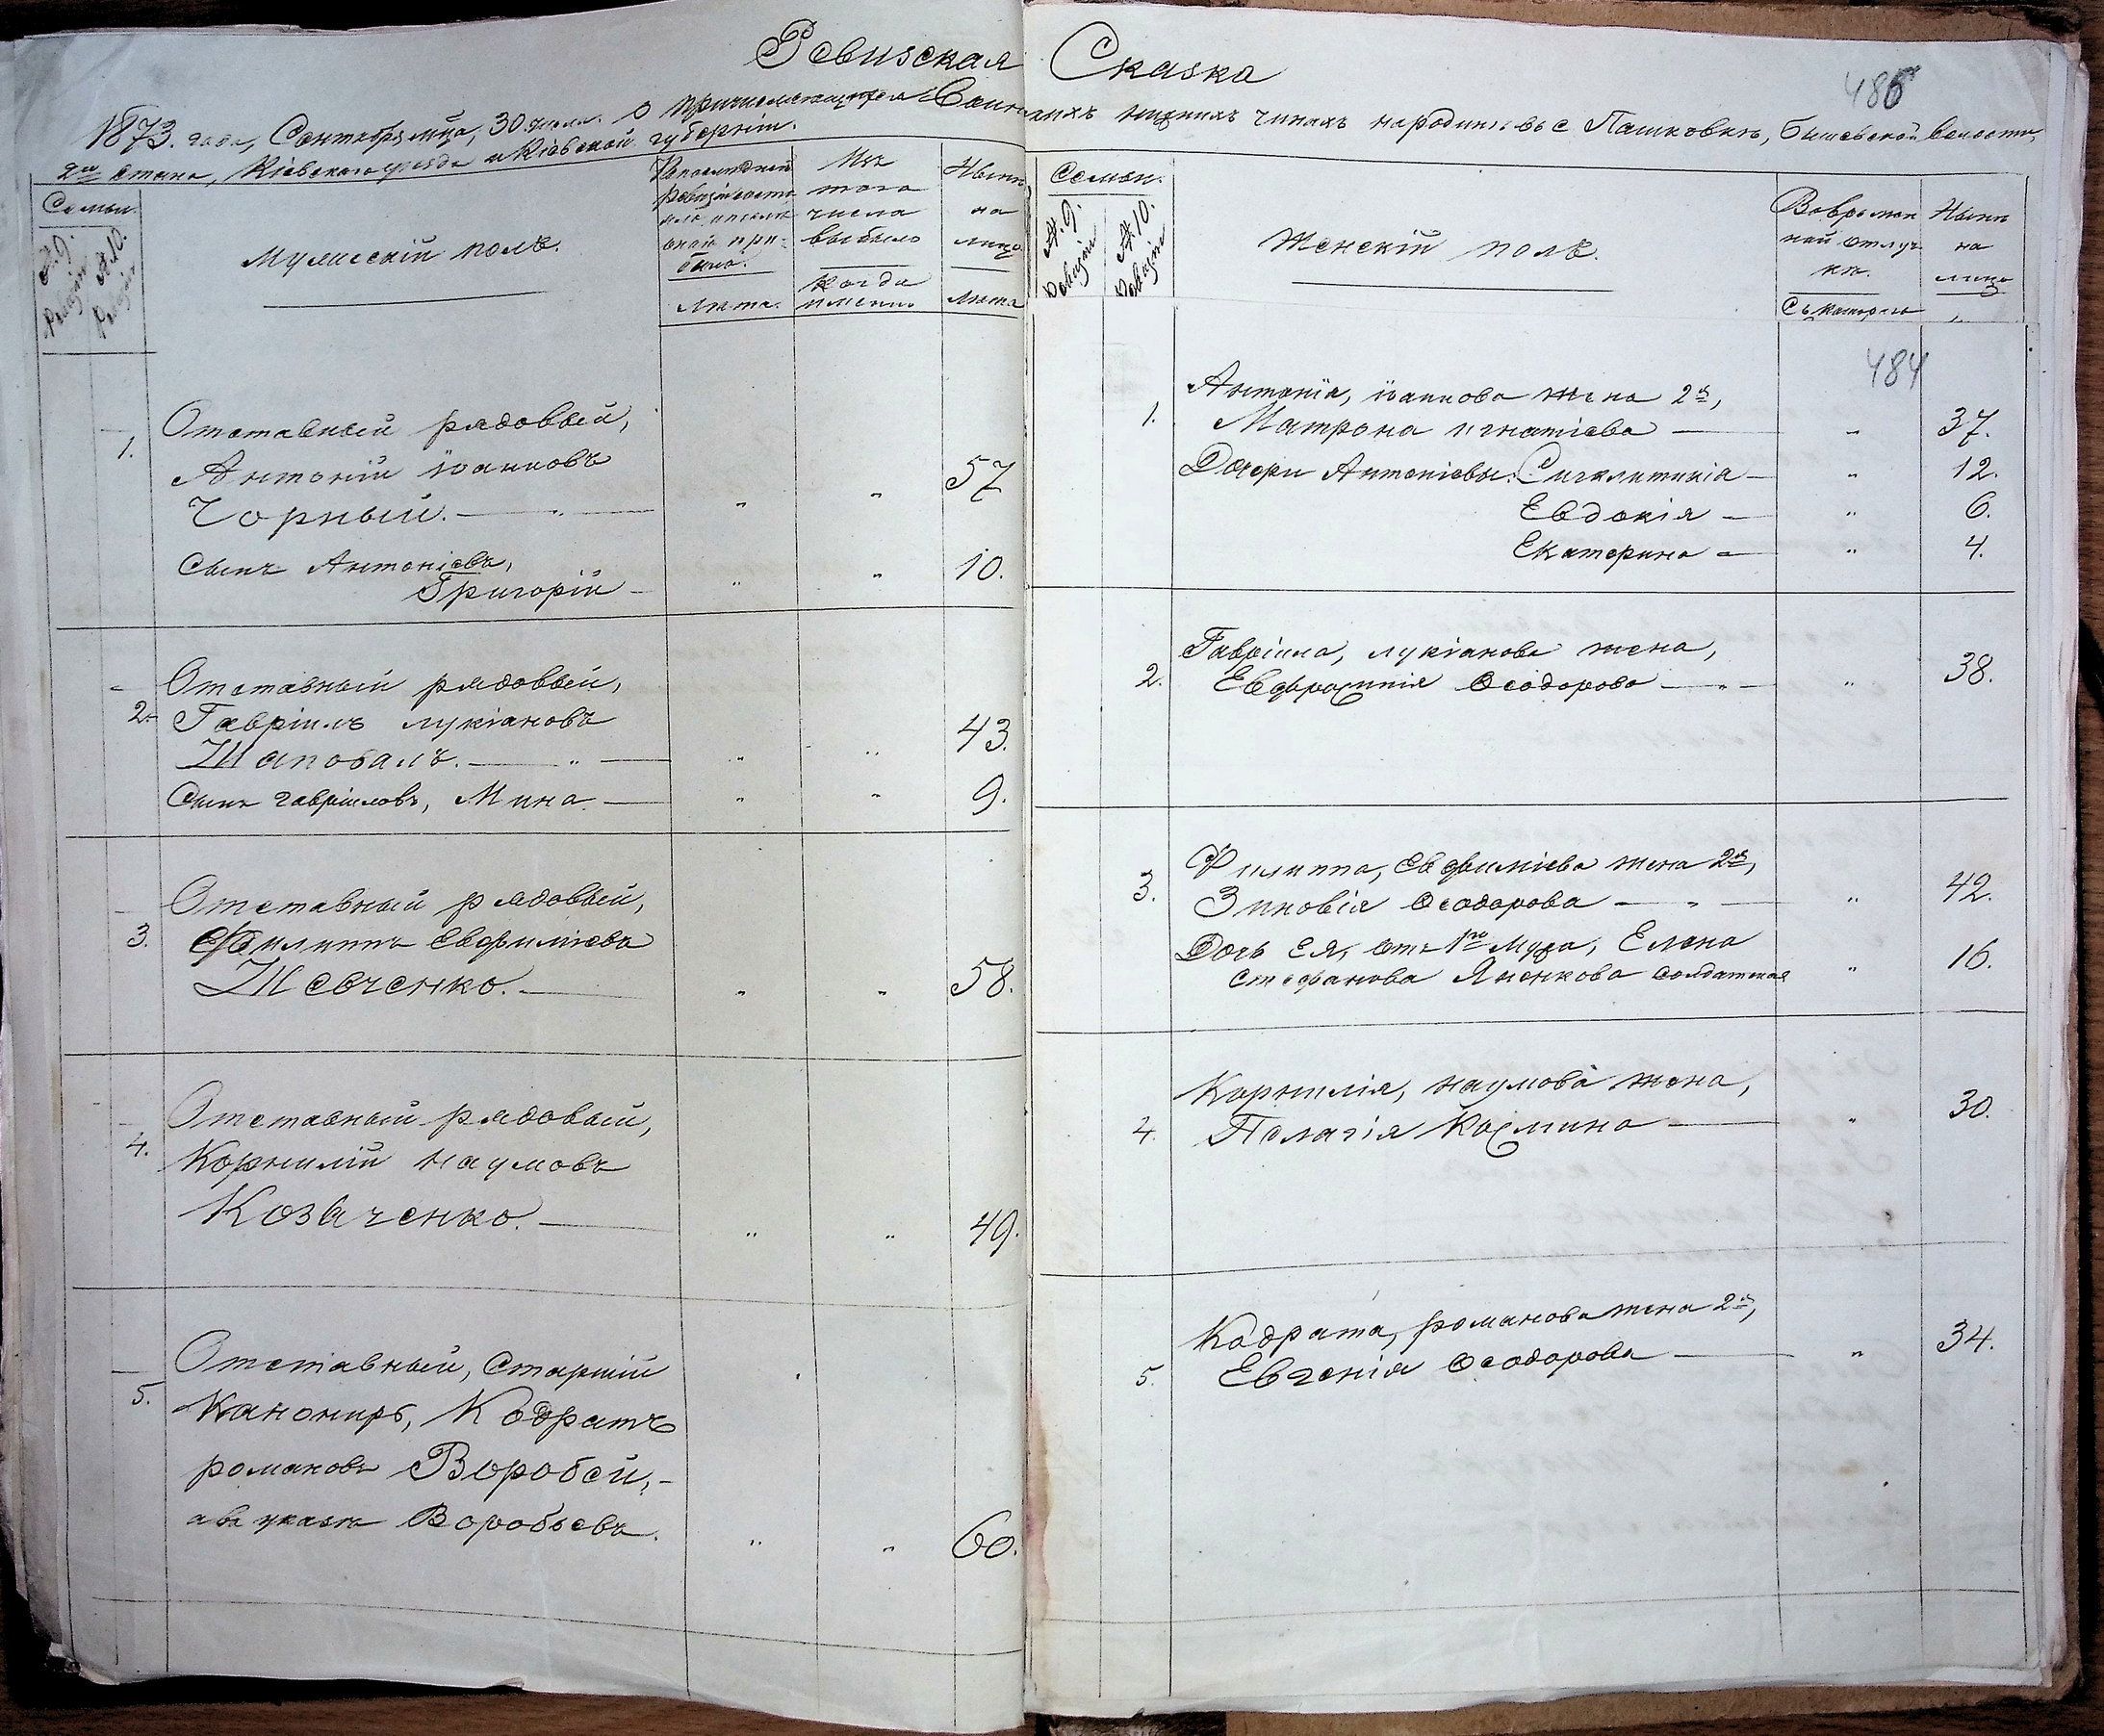 Ревизская Сказка
486
1873. года, Сентября мца, 30 числа. О причисляющихся Воинскихъ нижнихъ чинахъ народив: въ с Пашковкѣ, Бышевской волости,
2го Стана, Кіевскаго уѣзда и Кіевской губерніи.
Семьи.
№ 9. Ревизіи
№ 10. Ревизіи
Мужескій полъ.
По послѣдней
ревизіи состо
яло и послѣ
оной при-
было.
Лѣта.
Изъ
того
числа
выбыло
Когда
именно
Нынѣ
на
лицо
Лѣта
1. Отставный рядовый,
Антоній іоанновъ
Чорный. — „ — „ „ 57
Сынъ Антоніевъ,
Григорій — „ „ 10.
2. Отставный рядовый,
Гавріилъ лукіановъ
Шаповалъ. — „ — „ „ 43.
Сынъ гавріиловъ, Мина — „ „ 9.
3. Отставный рядовый,
Филиппъ Евфиміевъ
Шевченко. — „ „ 58.
4. Отставный рядовый,
Корнилій наумовъ
Козаченко. — „ „ 49.
5. Отставный, Старшій
Канониръ, Кодратъ
романовъ Воробей, –
а въ указѣ Воробьевъ. „ „ 60.
Семьи.
№ 9. Ревизіи
№ 10. Ревизіи
Женскій полъ.
Во времен
ной отлуч
кѣ.
Съ котораго
Нынѣ
на
лицо
„
484
1. Антонія, іоаннова жена 2я,
Матрона игнатіева — „ 37.
Дочери Антоніевы: Сигклитикіа — „ 12.
Евдокія — „ 6.
Екатерина — „ 4.
2. Гавріила, лукіанова жена,
Евфросинія Ѳеодорова — „ — „ 38.
3. Филиппа, Евфиміева жена 2я,
Зиновія Ѳеодорова — „ — „ 42.
Дочь Ея, отъ 1го мужа, Елена
Стефанова Яненкова солдатская „ 16.
4. Корнилія, наумова жена,
Пелагія Космина — „ 30.
5. Кодрата, романова жена 2я,
Евгенія Ѳеодорова — „ 34.